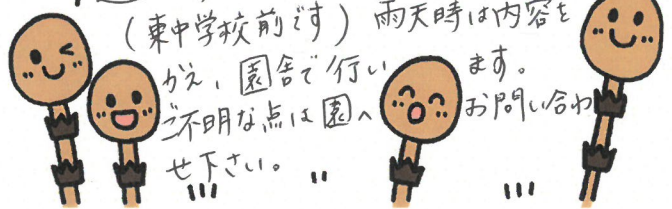 (東中学校前です) 雨天時は内容を
かえ、園舎で行います。
ご不明な点は園へお問い合わ
せ下さい。